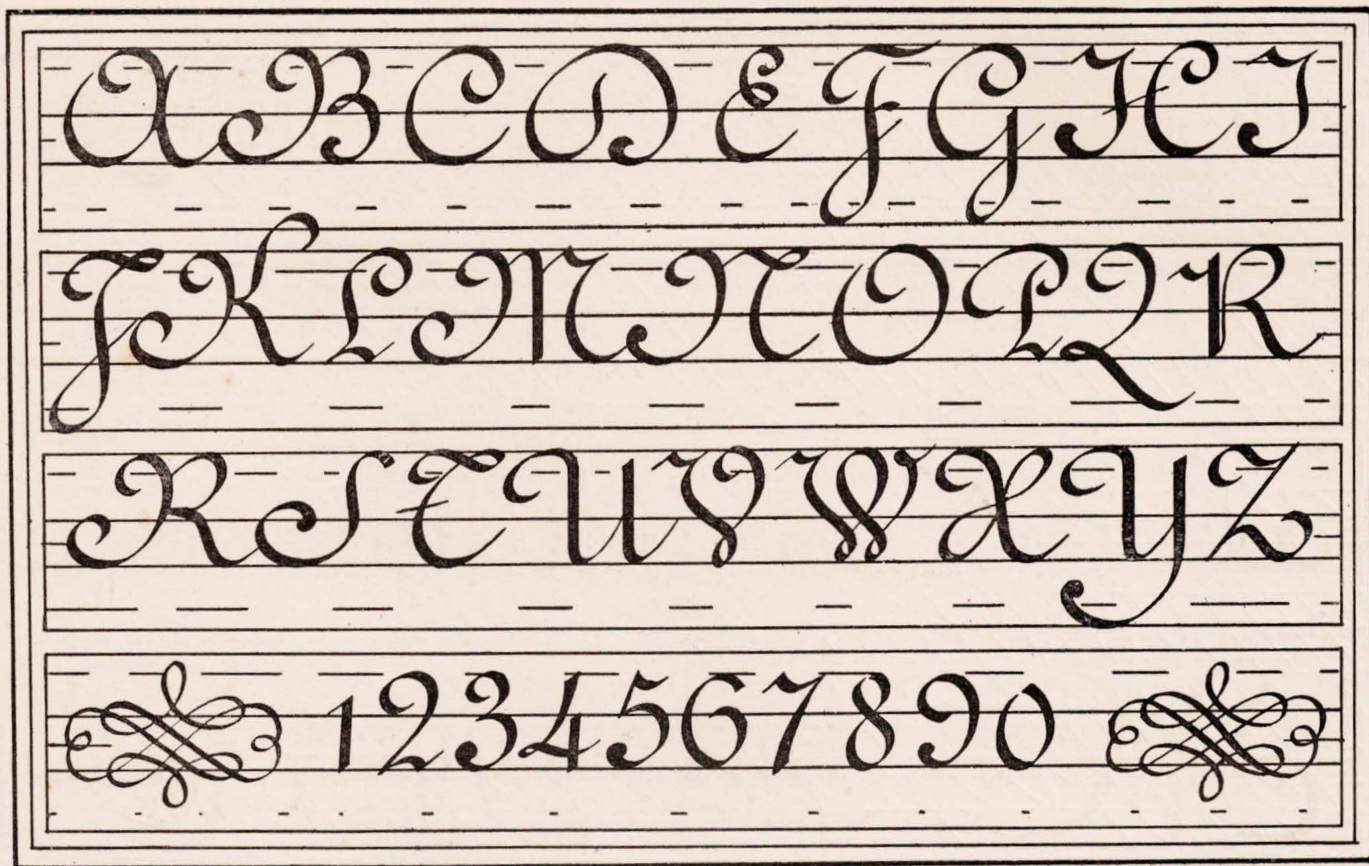 A B C D E F G H I
J K L M N O P Q R
R S T U V W X Y Z
1 2 3 4 5 6 7 8 9 0